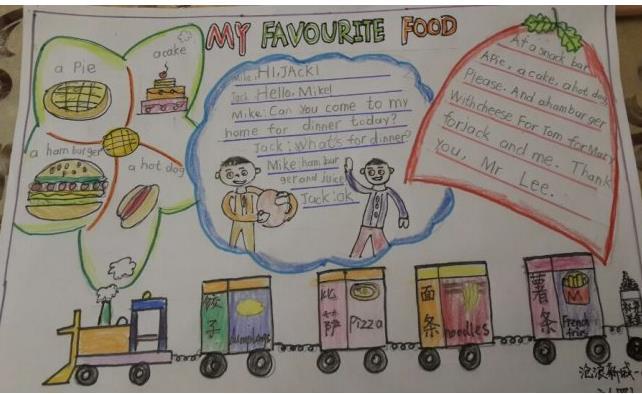 MY FAVOURITE FOOD
a Pie
a cake
a hamburger
a hot dog
Mike: HI, JAck!
Jack: Hello, Mike!
Mike: Can You come to my
home for dinner today?
Jack: what's for dinner?
Mike: hambur
ger and juice
Jack: ok
At a snack bar
A Pie, a cake, a hot dog
Please. And a hamburger
With cheese For Tom for Mary
for jack and me. Thank
You, Mr Lee.
饺子
dumplings
比萨
Pizza
面条
noodles
薯条
M
French
fries